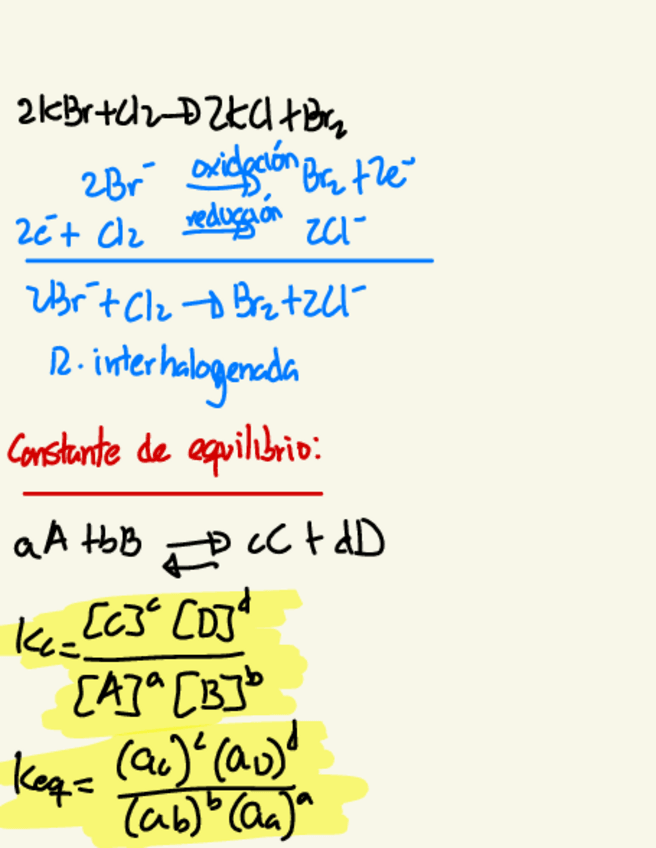 2KBr+Cl₂→2KCl+Br₂
2Br⁻ oxidación→ Br₂+2e⁻
2e⁻+ Cl₂ reducción→ 2Cl⁻
2Br⁻+Cl₂→Br₂+2Cl⁻
R. interhalogenada
Constante de equilibrio:
aA+bB ⇌ cC+dD
Kc= [C]ᶜ [D]ᵈ / [A]ᵃ [B]ᵇ
Keq= (ac)ᶜ (aD)ᵈ / (ab)ᵇ (aa)ᵃ